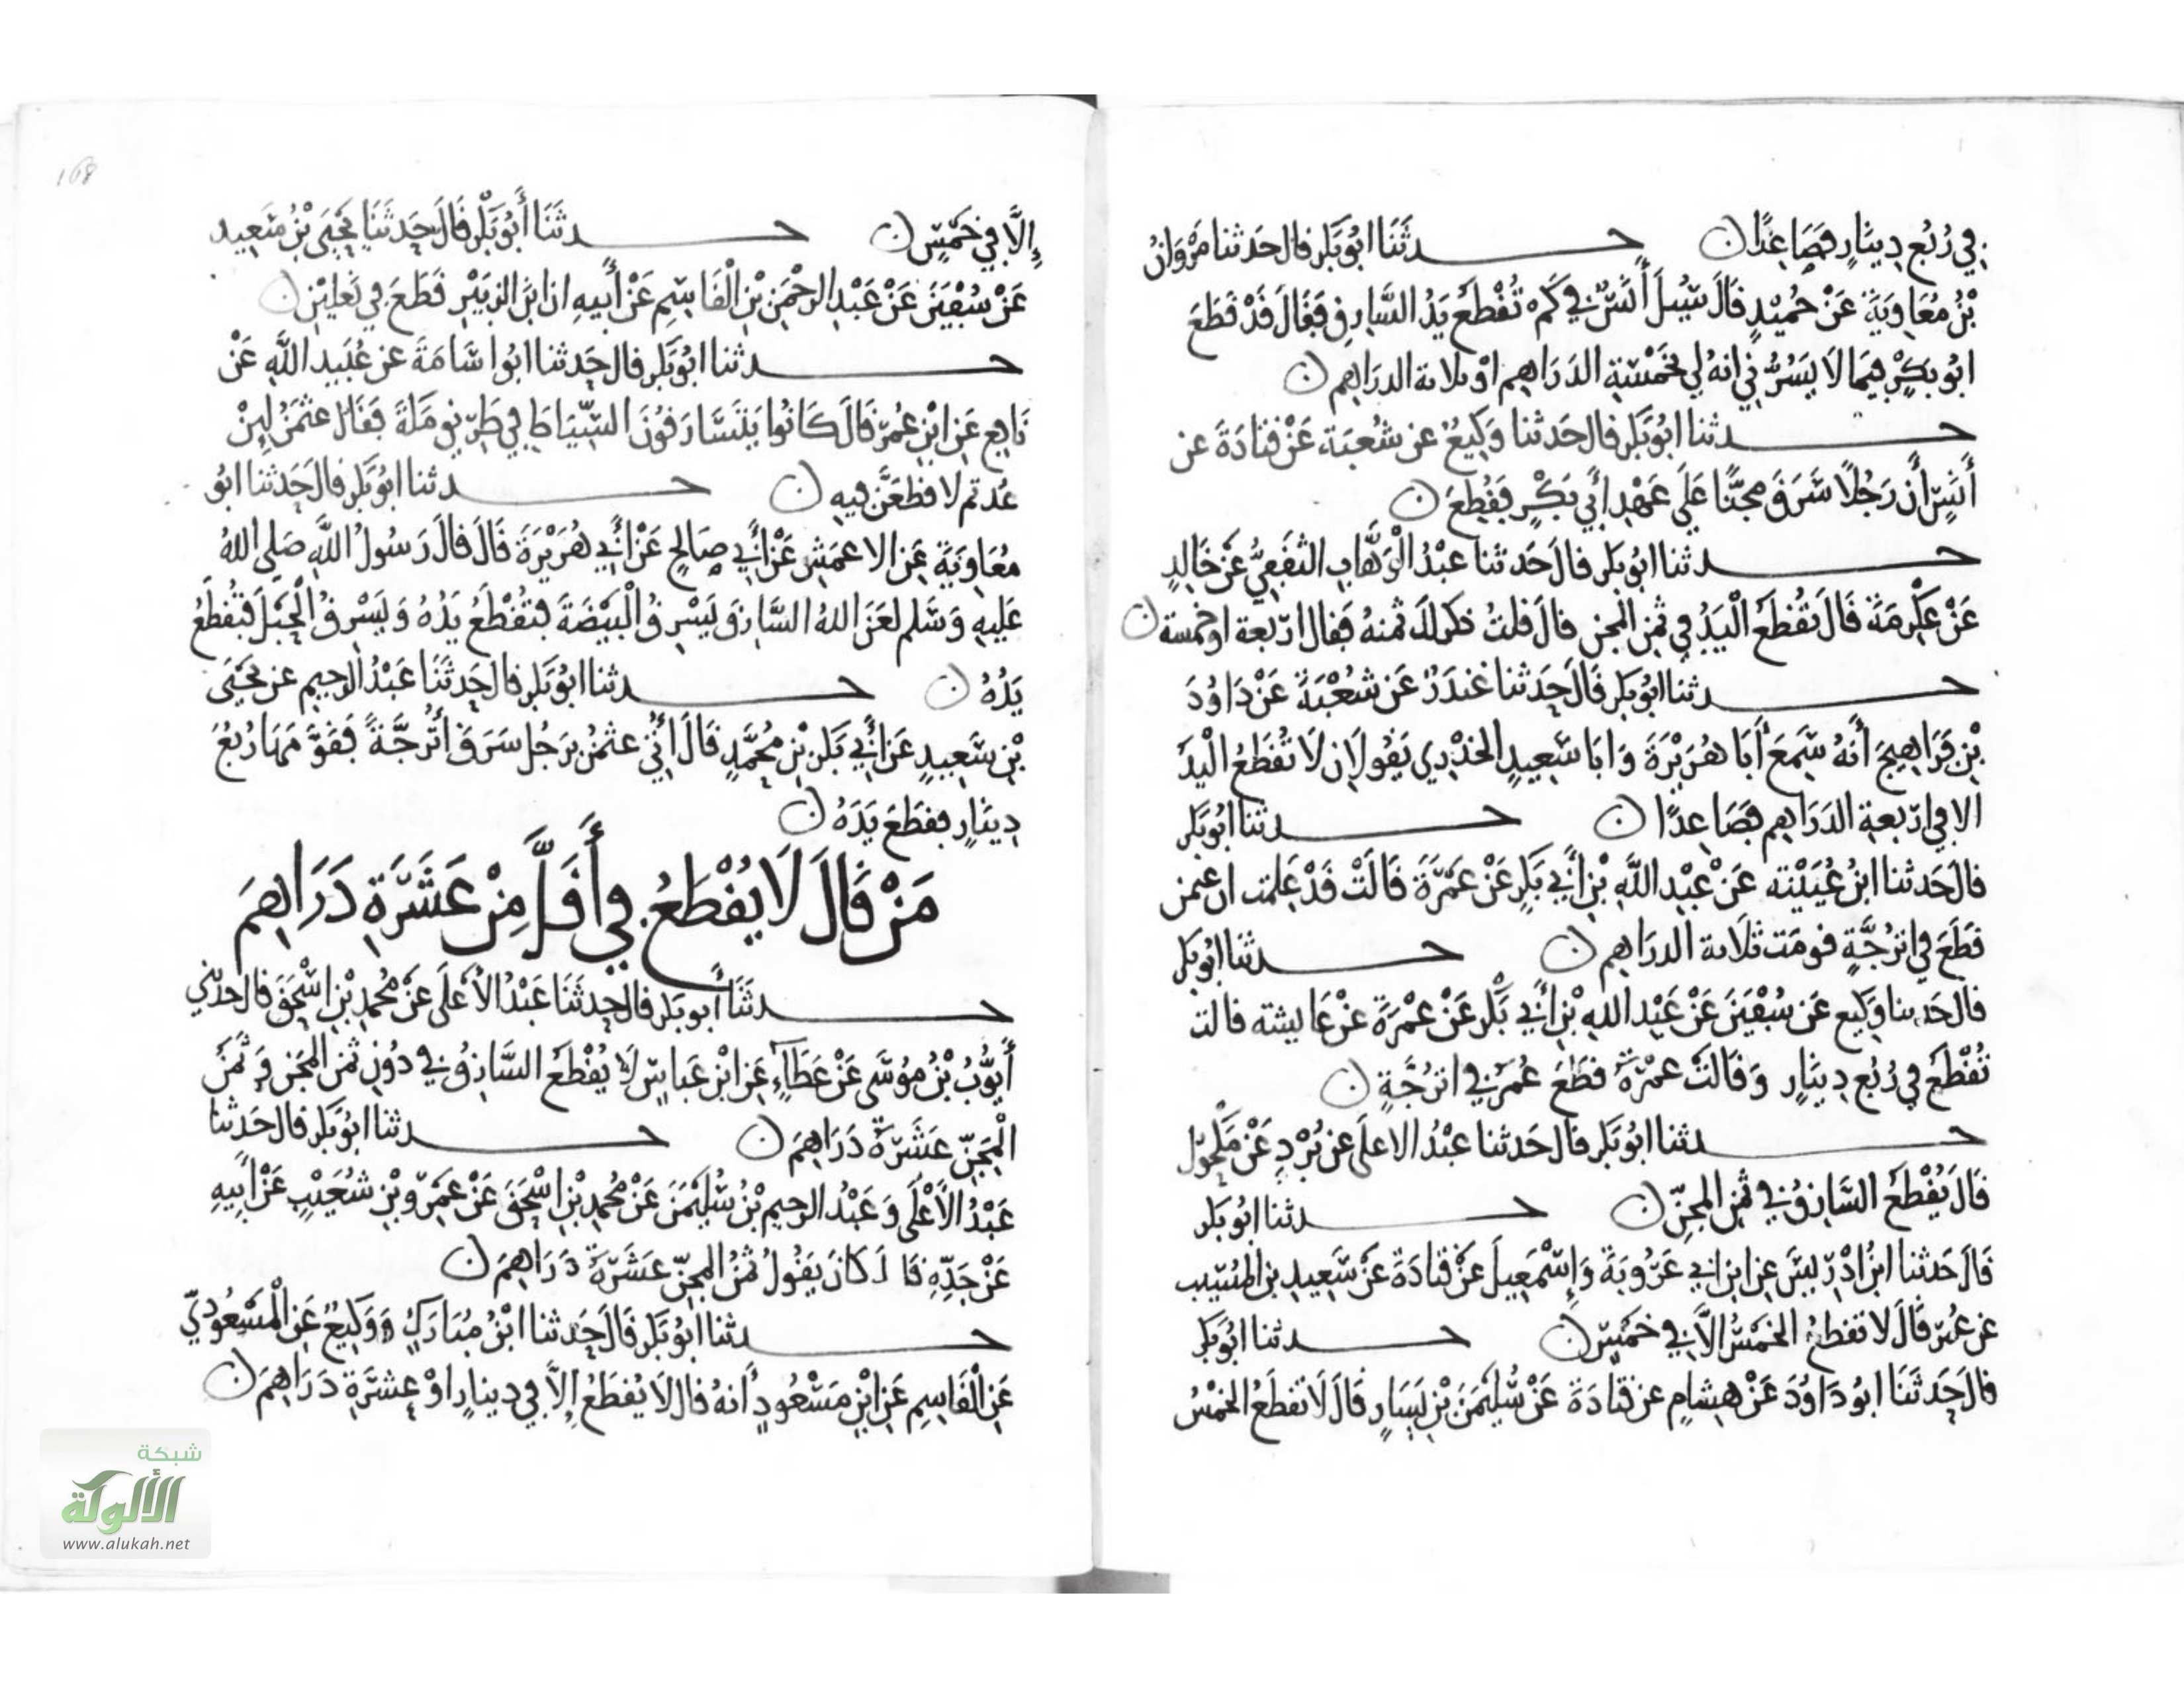 في رُبُعِ دِينَارٍ فَصَاعِدًا ن حدثَنَا ابُو بَكر قال حَدثنا مَرْوَانُ
بْنُ مُعَاوِيَةَ عَنْ حُمَيْدٍ قَالَ سُئِلَ أَنَسٌ في كَمْ تُقْطَعُ يَدُ السَّارِقِ فَقَالَ قَدْ قَطَعَ
ابُو بَكْرٍ فِيمَا لَا يَسُرُّنِي انهُ لِي بِخَمْسَةِ الدَرَاهِمِ اوْ ثلاثة الدرَاهِم ن
حدثنا ابُو بَكر قال حَدثنا وَكِيعٌ عن شُعبَةَ عَنْ قتَادَةَ عن
أَنَسٍ أَن رَجُلًا سَرَقَ مِجَنًّا عَلَى عَهْدِ أَبِي بَكْرٍ فَقُطِعَ ن
حدثنا ابُو بَكر قال حَدثنا عَبْدُ الْوَهَّابِ الثَقَفِيُّ عَنْ خَالِدٍ
عَنْ عِكْرِمَةَ قَالَ تُقْطَعُ الْيَدُ فِي ثَمَنِ المجن قال قلتُ ذكر لك ثمنهُ فقال ارْبعة او خمسة ن
حدثنا ابُو بَكر قَالَ حَدثنا غندَرٌ عَن شُعْبَةَ عَنْ دَاوُدَ
بْنِ فَرَاهِيجَ أَنهُ سَمِعَ أَبَا هُرَيْرَةَ وَابَا سَعِيدٍ الخدْرِي يَقُولَانِ لَا تُقطَعُ الْيَدُ
الا في ارْبعةِ الدَرَاهِمِ فَصَاعِدًا ن حدثنا ابُو بَكر
قال حَدثنا ابنُ عُيَيْنَة عَنْ عَبْدِ اللَّهِ بْنِ أَبِي بَكرٍ عَنْ عَمْرَةَ قَالَتْ قَدْ عَلِمْت ان عثمن
قَطَعَ في اتْرُجَّةٍ قومَت ثلاثة الدرَاهِم ن حدثنا ابُو بَكر
قال حَدثنا وَكِيع عَن سُفْيَنَ عَنْ عَبْدِ اللهِ بْنِ أَبِي بَكْر عَنْ عَمْرَةَ عَنْ عَايِشة قالت
تُقْطَعُ فِي رُبُعِ دِينَارٍ وَقَالَتْ عَمْرَةُ قَطَعَ عُمَرُ في اتْرُجَّةٍ ن
حدثنا ابُو بَكر قال حَدثنا عَبْدُ الاعلَى عن بُرْدٍ عَنْ مَكْحُول
قَالَ يُقْطَعُ السَّارِقُ في ثَمَنِ المِجَنِّ ن حدثنا ابُو بَكر
قَالَ حَدثنا ابنُ ادْرِيسَ عن ابن ابي عَرُوبَةَ وَإِسْمَعِيلَ عَنْ قتَادَةَ عَنْ سَعِيدِ بن المُسَيّب
عن عُمَر قَالَ لا تقطعُ الخَمْسُ الَّا في خَمْسٍ ن حدثنا ابُو بَكر
قال حَدثَنَا ابُو دَاوُدَ عَنْ هِشامٍ عن قتَادَةَ عَنْ سُلَيْمَنَ بْنِ يَسَارٍ قَالَ لَا تقطَعُ الخَمْسُ
168
إِلَّا فِي خَمْسٍ ن حدثَنَا أَبُو بَكْر قَالَ حَدثَنَا يَحْيَى بْنُ سَعِيد
عَنْ سُفْيَنَ عَنْ عَبْدِ الرحْمَنِ بْنِ الْقَاسِمِ عَنْ أَبِيهِ ان ابْنَ الزبَيْرِ قَطَعَ فِي نَعلَيْنِ ن
حدثنا ابُو بَكر قال حَدثنا ابُو اسَامَةَ عن عُبَيدِ اللَّهِ عَنْ
نَافِعٍ عَن ابْنِ عُمَرَ قَالَ كَانُوا يَتَسَارَقُونَ السِّيَاطَ فِي طَرِيقِ مَكَّةَ فَقَالَ عثمَنُ لَئِنْ
عُدتم لاقطَعَنَّ فِيهِ ن حدثنا ابُو بَكر قال حَدثنا ابُو
مُعَاوِيَةَ عَنِ الاعمَشِ عَنْ أَبِي صَالِحٍ عَنْ أَبِي هُرَيْرَةَ قَالَ قَالَ رَسُولُ اللَّهِ صَلى اللهُ
عَلَيهِ وَسَلم لعَنَ اللهُ السَّارِقَ يَسْرِقُ الْبَيْضَةَ فَتُقْطَعُ يَدُهُ وَيَسْرِقُ الْحَبْلَ فَتُقْطَعُ
يَدُهُ ن حدثنا ابُو بَكر قال حَدثَنَا عَبْدُ الرحيمِ عن يَحْيَى
بْنِ سَعِيدٍ عَن أَبِي بَكرِ بْنِ مُحَمَّدٍ قَالَ أُتِيَ عثمَنُ برَجُلٍ سَرَقَ أُتْرُجَّةً فَقَوَّمَهَا رُبُعَ
دِينَارٍ فقطَعَ يَدَهُ ن
مَنْ قَالَ لَا يُقْطَعُ فِي أَقَلَّ مِنْ عَشَرَةِ دَرَاهِمَ
حدثَنَا أَبو بَكر قال حدثَنَا عَبْدُ الأَعْلَى عَنْ مُحمدِ بْنِ اسْحَقَ قال حدثني
أَيُّوبُ بْنُ مُوسَى عَنْ عَطَآءٍ عَنِ ابْنِ عَبَاسٍ لَا يُقْطَعُ السَّارِقُ فِي دُونِ ثَمَنِ المِجَنِ وَثَمَنُ
الْمِجَنِّ عَشَرَةُ دَرَاهِمَ ن حدثنا ابُو بَكر قال حَدثنا
عَبْدُ الأَعْلَى وَعَبْدُ الرحيمِ بْنُ سُلَيْمَنَ عَنْ مُحمدِ بْنِ اسْحَقَ عَنْ عَمْرِو بْنِ شُعَيْبٍ عَنْ أَبِيهِ
عَنْ جَدِّهِ قَالَ كَانَ يَقُولُ ثَمَنُ المِجَنِّ عَشَرَةُ دَرَاهِمَ ن
حدثنا ابُو بَكر قَالَ حَدثنا ابْنُ مُبَارَكٍ وَوَكِيعٌ عَنِ الْمَسْعُودِيِّ
عَنِ الْقَاسِمِ عَنِ ابْنِ مَسْعُودٍ أَنهُ قال لَا يُقطَعُ إِلَّا فِي دِينَارٍ اوْ عَشَرَةِ دَرَاهِمَ ن
شبكة
الألوكة
www.alukah.net